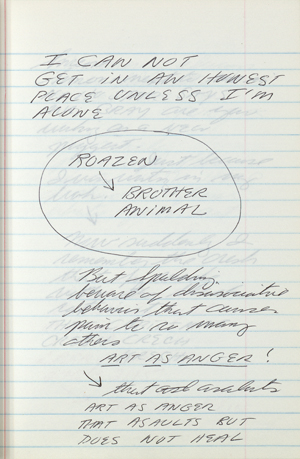 I CAN NOT
GET IN AN HONEST
PLACE UNLESS I'M
ALONE
ROAZEN
BROTHER
ANIMAL
But Spalding
beware of disassociative
behavior that causes
pain to so many
others
ART AS ANGER!
that asaults
ART AS ANGER
THAT ASAULTS BUT
DOES NOT HEAL